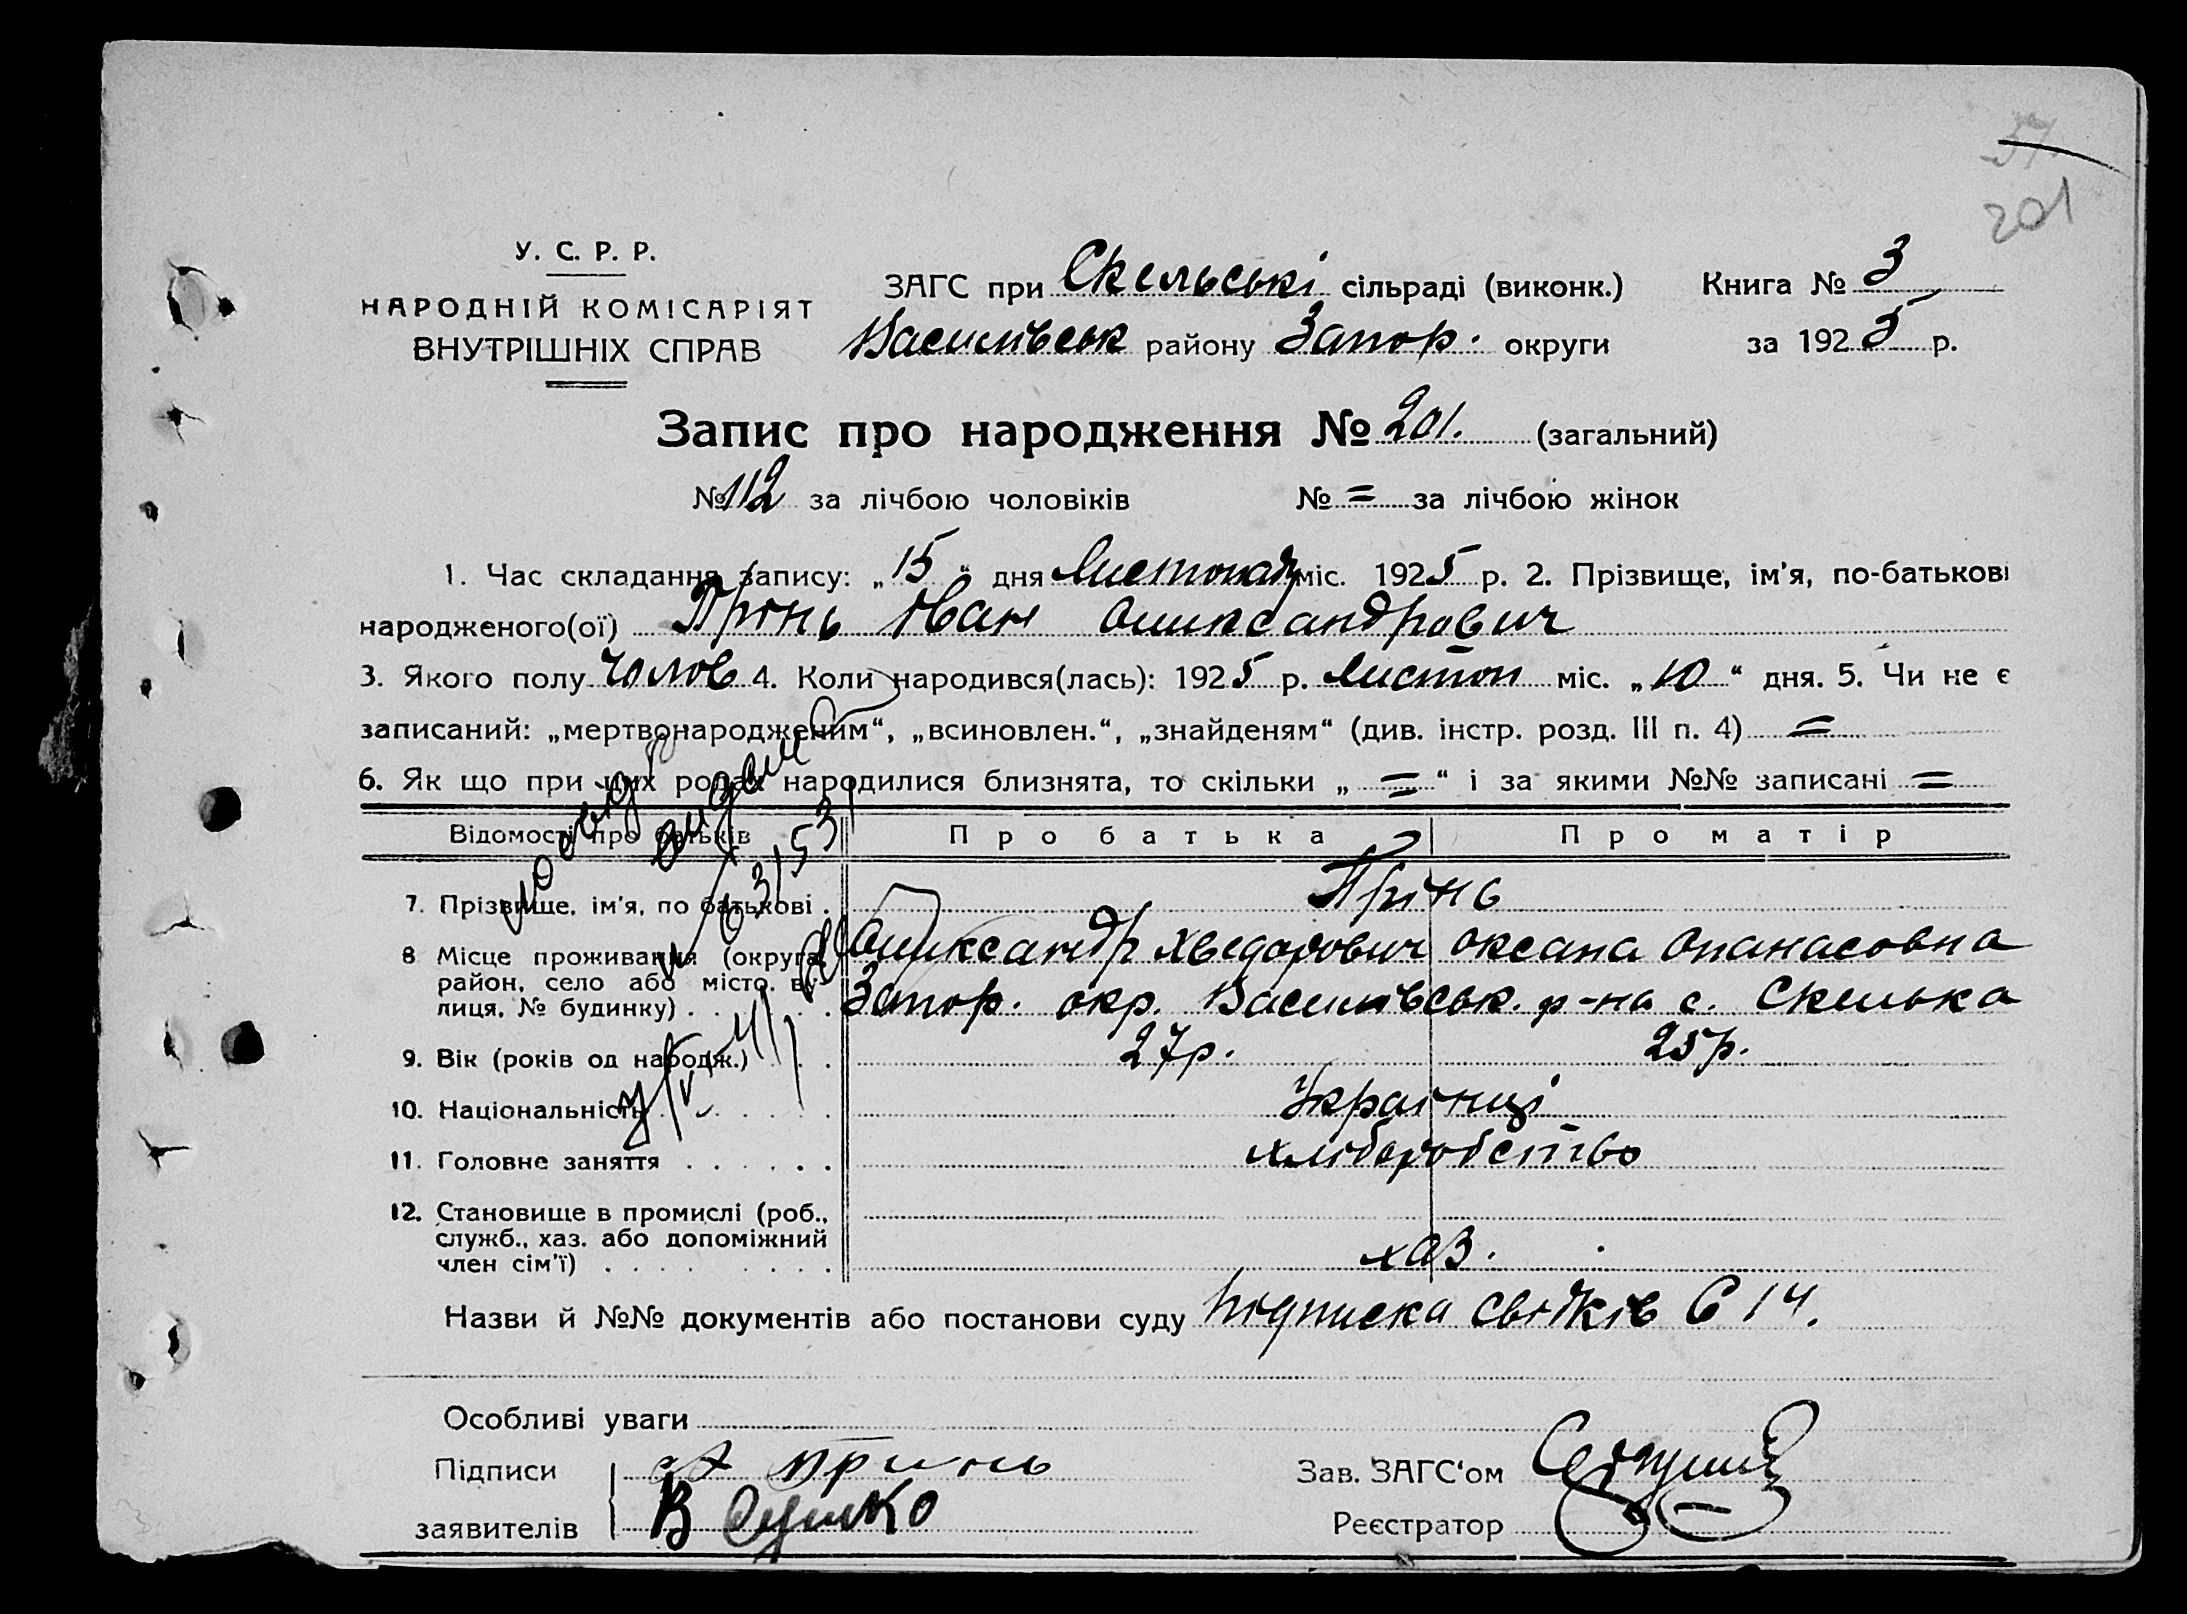 57
201
У. С. Р. Р.
НАРОДНІЙ КОМІСАРІЯТ
ВНУТРІШНІХ СПРАВ
ЗАГС при Скельські сільраді (виконк.) Книга № 3
Василівськ району Запор. округи за 1925 р.
Запис про народження № 201. (загальний)
№ 112 за лічбою чоловіків № = за лічбою жінок
1. Час складання запису: „15“ дня Листопад міс. 1925 р. 2. Прізвище, ім’я, по-батькові
народженого(ої) Прінь Іван Олександрович
3. Якого полу чолов 4. Коли народився(лась): 1925 р. Листоп міс. „10“ дня. 5. Чи не є
записаний: „мертвонародженим“, „всиновлен.“, „знайденям“ (див. інстр. розд. III п. 4) =
6. Як що при цих родах народилися близнята, то скільки „=“ і за якими №№ записані =
Відомості про батьків Про батька Про матір
7. Прізвище, ім’я, по батькові . Прінь
Олександр Хведорович Оксана Опанасовна
8 Місце проживання (округа,
район, село або місто, ву-
лиця, № будинку) . . . . . . Запор. окр. Василівськ. р-на с. Скелька
9. Вік (років од народж.) . . . 27р. 25р.
10. Національність . . . . . . Українці
11. Головне заняття . . . . . . хліборобство
12. Становище в промислі (роб.,
служб., хаз. або допоміжний
член сім’ї) . . . . . . . . . хаз.
Назви й №№ документів або постанови суду Підписка свідків С 14.
Особливі уваги
Підписи Принь Зав. ЗАГС‘ом
заявителів В Реєстратор